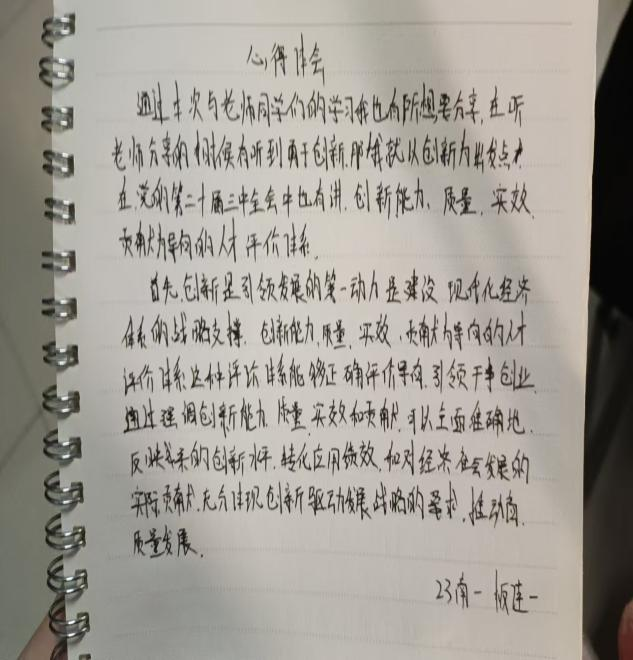 心得体会
通过本次与老师同学们的学习我也有所想要分享,在听
老师分享的时候有听到勇于创新,那我就以创新为出发点
在党的第二十届三中全会中也有讲,创新能力、质量、实效、
贡献为导向的人才评价体系.
首先创新是引领发展的第一动力是建设现代化经济
体系的战略支撑.创新能力,质量、实效、贡献为导向的人才
评价体系这种评价体系能够正确评价导向,引领干事创业.
通过强调创新能力、质量、实效和贡献,可以全面准确地.
反映的创新水平、转化应用绩效,和对经济社会发展的
实际贡献,充分体现创新驱动发展战略的要求,推动高
质量发展.
23南一 连一